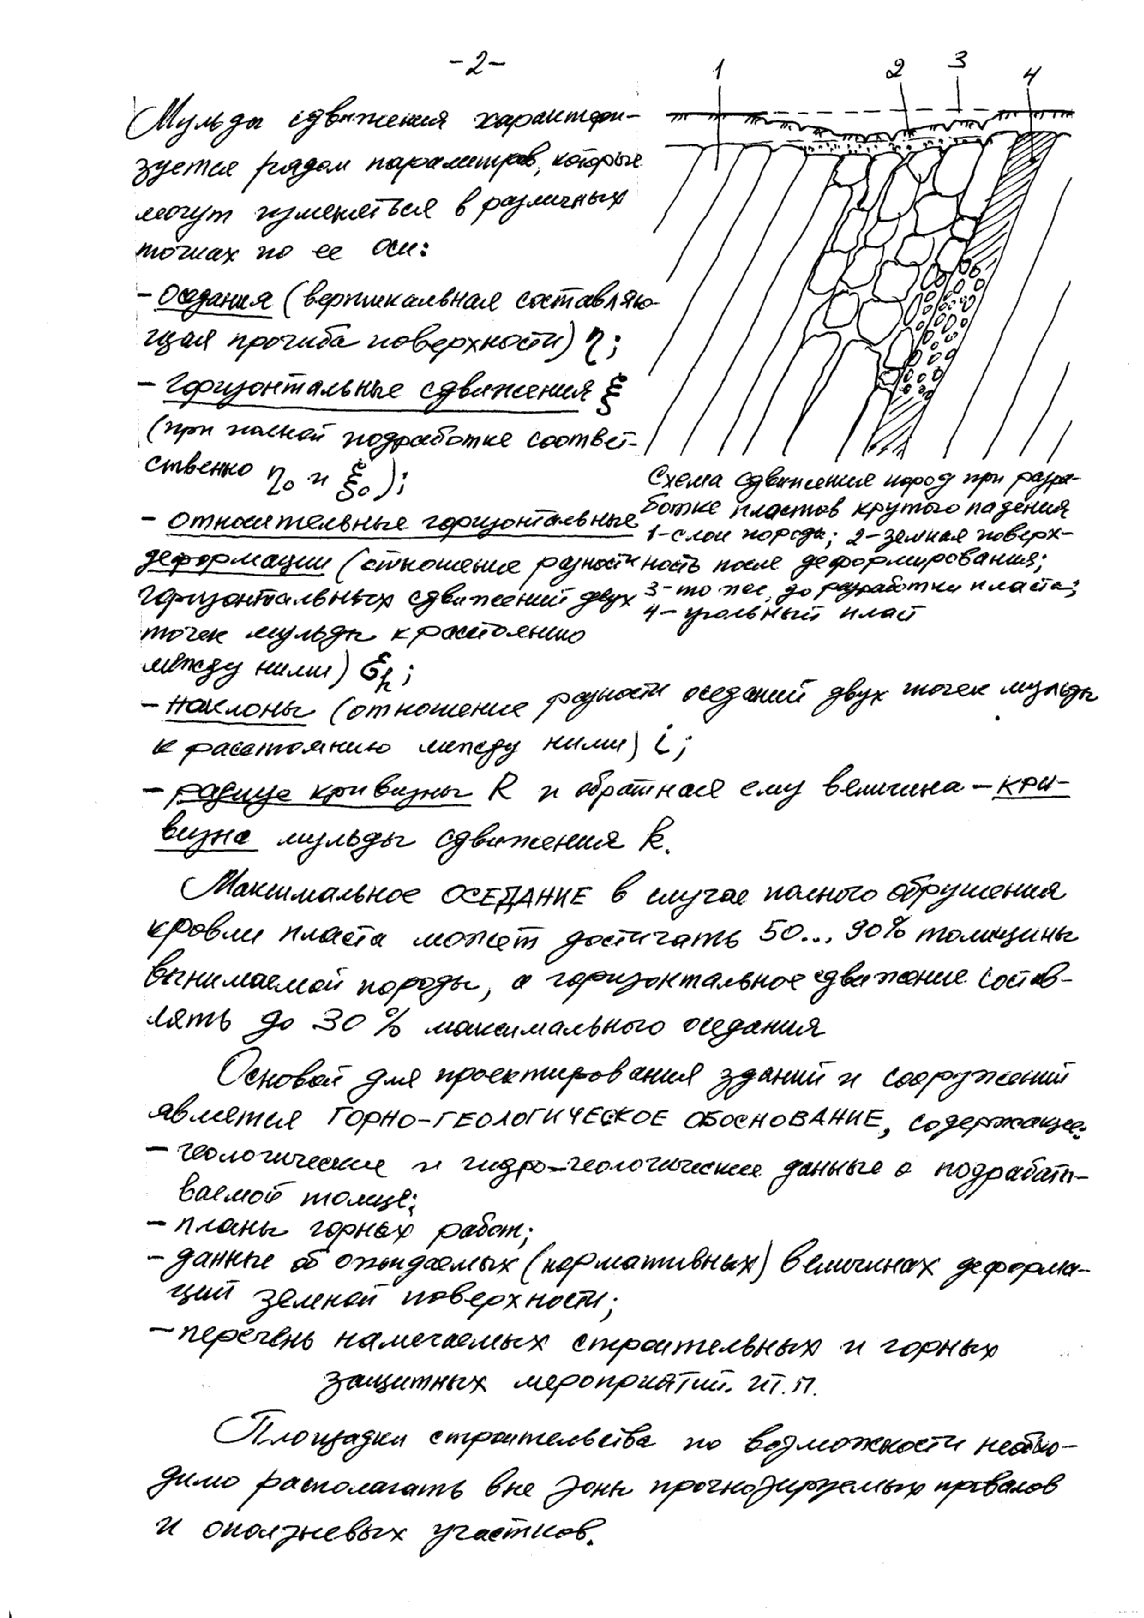 -2-
1 2 3 4
Мульда сдвижения характери-
зуется рядом параметров, которые
могут изменяться в различных
точках по ее оси:
- оседания (вертикальная составляю-
щая прогиба поверхности) η;
- горизонтальные сдвижения ξ
(при полной подработке соответ-
ственно η₀ и ξ₀);
- относительные горизонтальные
деформации (отношение разности
горизонтальных сдвижений двух
точек мульды к расстоянию
между ними) Ɛₕ;
Схема сдвижения пород при разра-
ботке пластов крутого падения
1-слои породы; 2-земная поверх-
ность после деформирования;
3-то же, до разработки пласта;
4- угольный пласт
- наклоны (отношение разности оседаний двух точек мульды
к расстоянию между ними) i;
- радиус кривизны R и обратная ему величина - кри-
визна мульды сдвижения k.
Максимальное ОСЕДАНИЕ в случае полного обрушения
кровли пласта может достигать 50...90% толщины
вынимаемой породы, а горизонтальное сдвижение состав-
лять до 30% максимального оседания
Основой для проектирования зданий и сооружений
является ГОРНО-ГЕОЛОГИЧЕСКОЕ ОБОСНОВАНИЕ, содержащее:
- геологические и гидро-геологические данные о подрабаты-
ваемой толще;
- планы горных работ;
- данные об ожидаемых (нормативных) величинах деформа-
ций земной поверхности;
- перечень намечаемых строительных и горных
защитных мероприятий. и т.п.
Площадки строительства по возможности необхо-
димо располагать вне зоны прогнозируемых провалов
и оползневых участков.